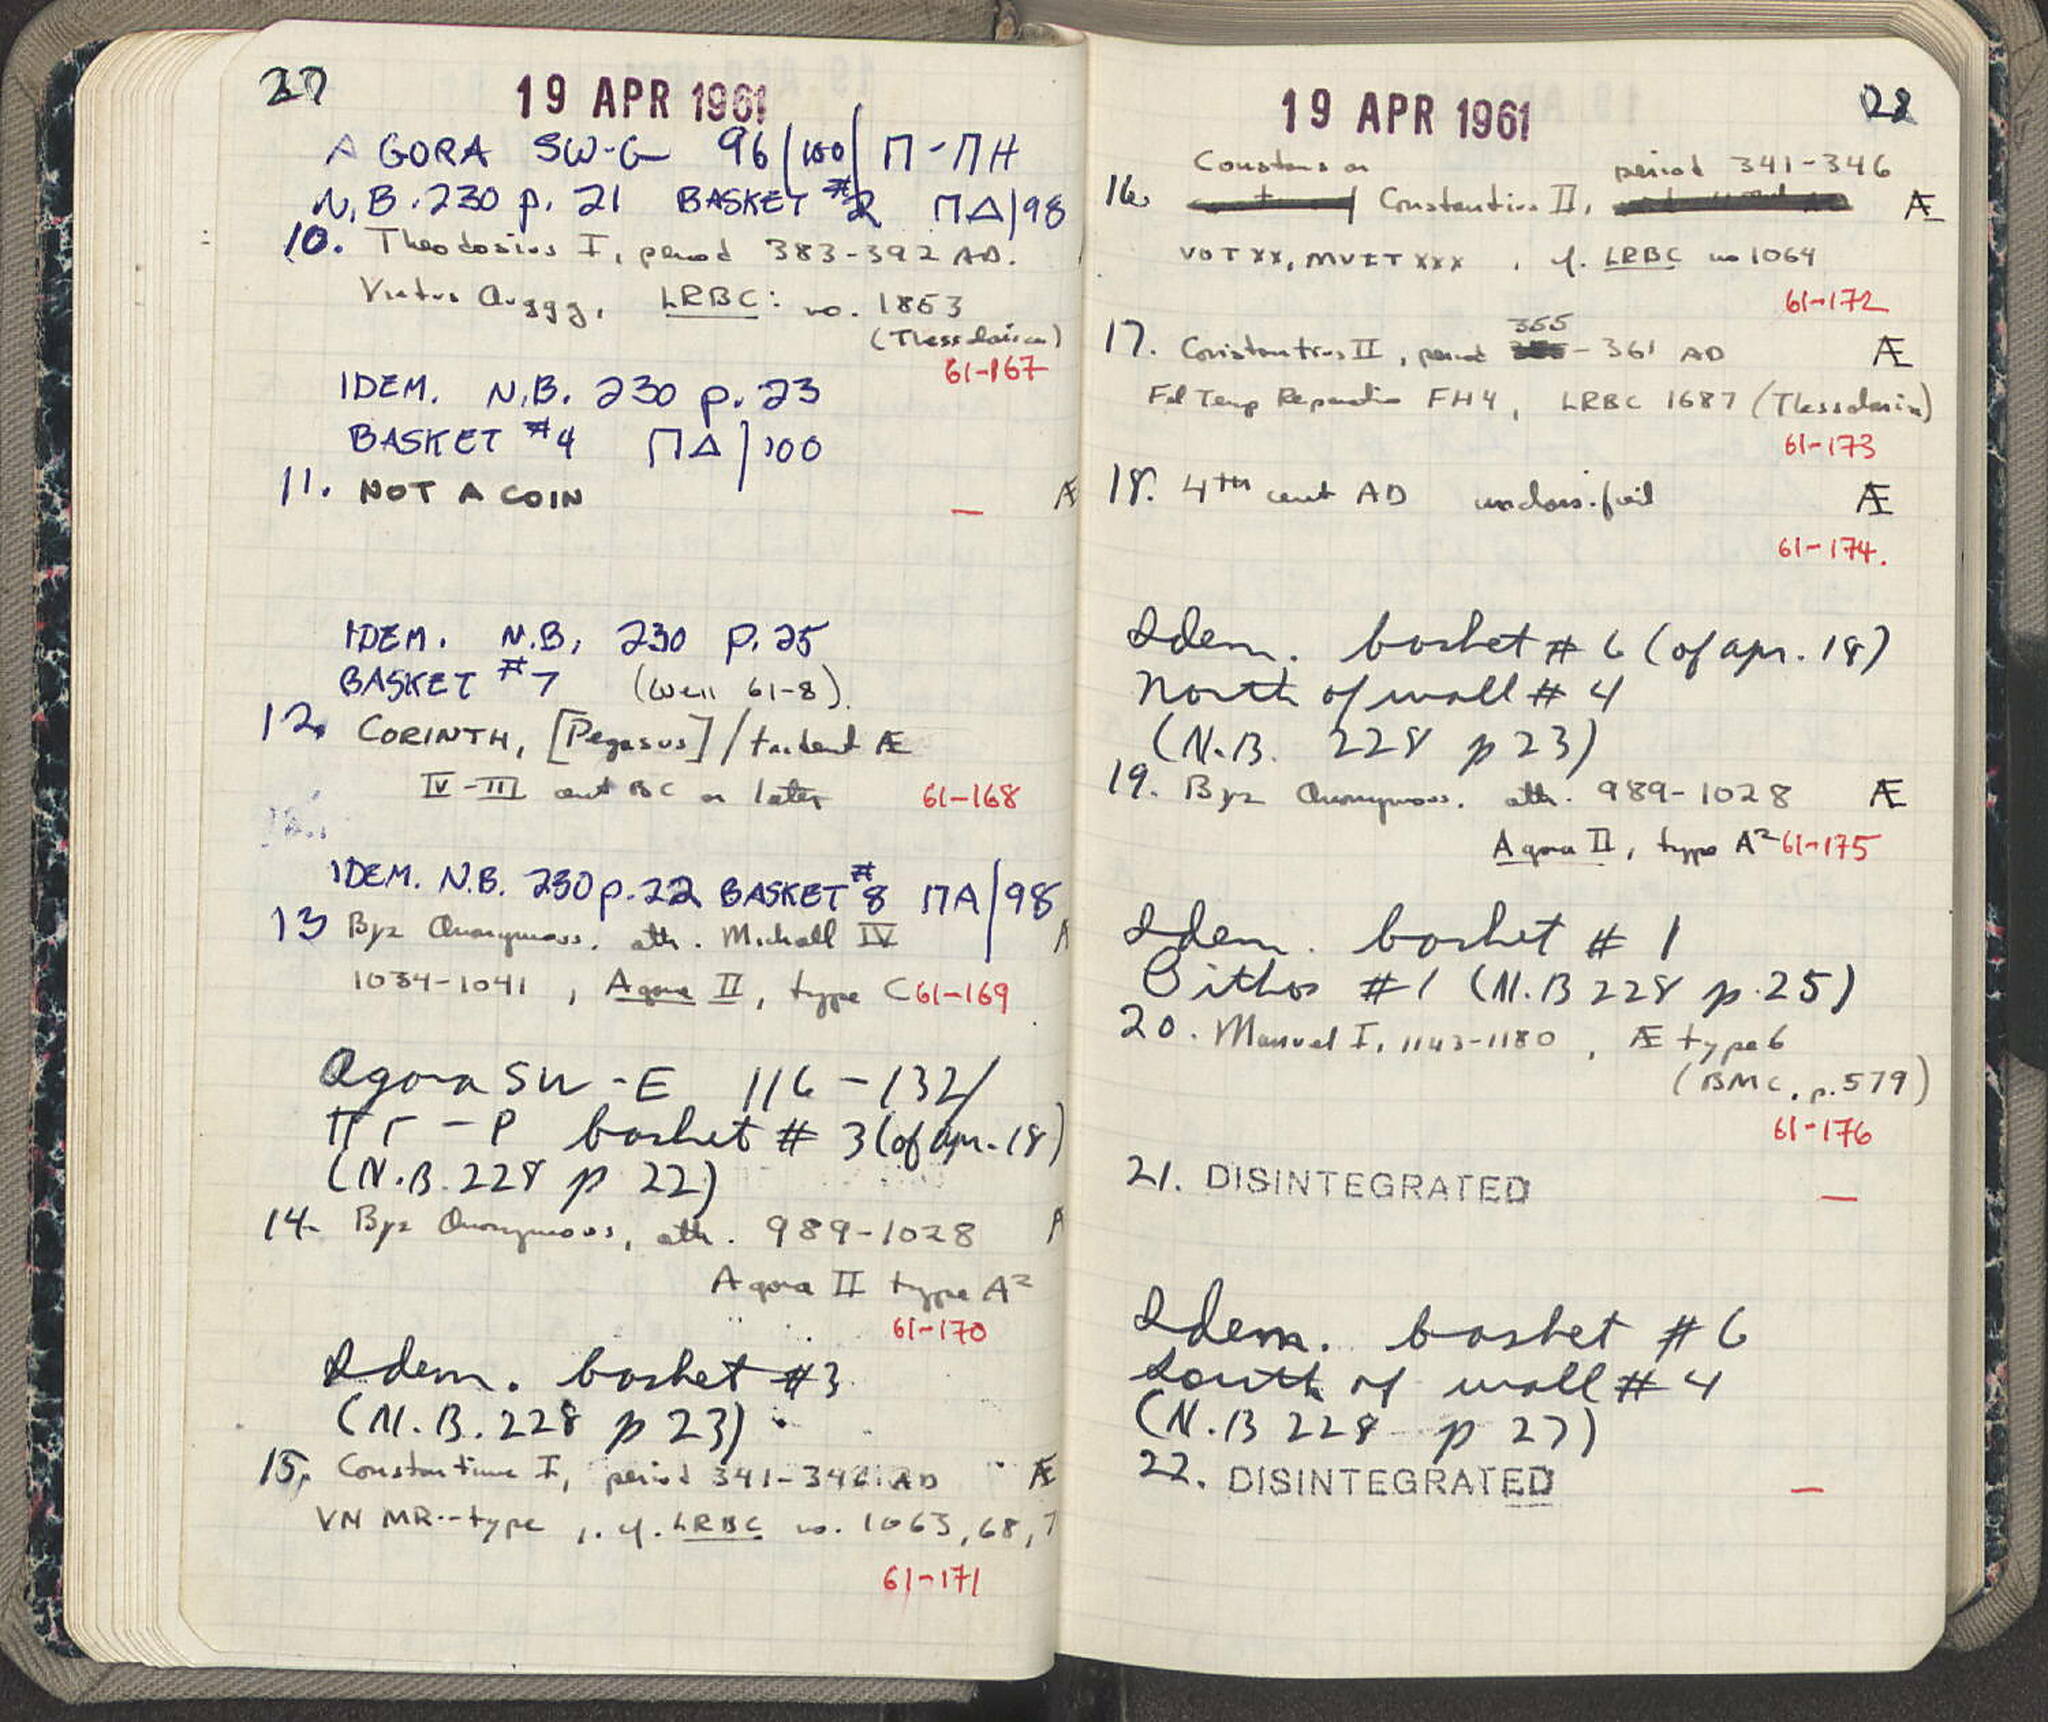 27
19 APR 1961
AGORA SW-G 96/100/ Π-ΠΗ
N.B. 230 p. 21 BASKET #2 ΠΔ/98
10. Theodosius I, period 383-392 AD.
Virtus Auggg, LRBC: no. 1853
(Thessalonica)
61-167
IDEM. N.B. 230 p. 23
BASKET #4 ΠΔ/100
11. NOT A COIN Æ
—
IDEM. N.B. 230 p. 25
BASKET #7 (Well 61-8).
12. CORINTH, [Pegasus]/trident Æ
IV-III cent BC or later 61-168
IDEM. N.B. 230 p. 22 BASKET #8 ΠΑ/98
13 Byz Anonymous. attr. Michael IV
1034-1041, Agora II, type C 61-169
Agora SW-E 116-132/
ΠΓ-Ρ basket #3 (of apr. 18)
(N.B. 228 p 22)
14. Byz Anonymous, attr. 989-1028
Agora II type A²
61-170
Idem. basket #3
(N.B. 228 p 23)
15. Constantine I, period 341-346 AD Æ
VN MR--type, cf. LRBC no. 1063, 68, 7
61-171
28
19 APR 1961
Constans or period 341-346
16. Constantius II, Æ
VOT XX, MVLT XXX, cf. LRBC no 1064
61-172
355
17. Constantius II, period - 361 AD Æ
Fel Temp Reparatio FH4, LRBC 1687 (Thessalonica)
61-173
18. 4th cent AD unclassified Æ
61-174.
Idem. basket #6 (of apr. 18)
North of wall #4
(N.B. 228 p 23)
19. Byz Anonymous. attr. 989-1028 Æ
Agora II, type A² 61-175
Idem. basket #1
Pithos #1 (N.B 228 p. 25)
20. Manuel I, 1143-1180, Æ type 6
(BMC, p. 579)
61-176
21. DISINTEGRATED —
Idem. basket #6
South of wall #4
(N.B 228 p 27)
22. DISINTEGRATED —